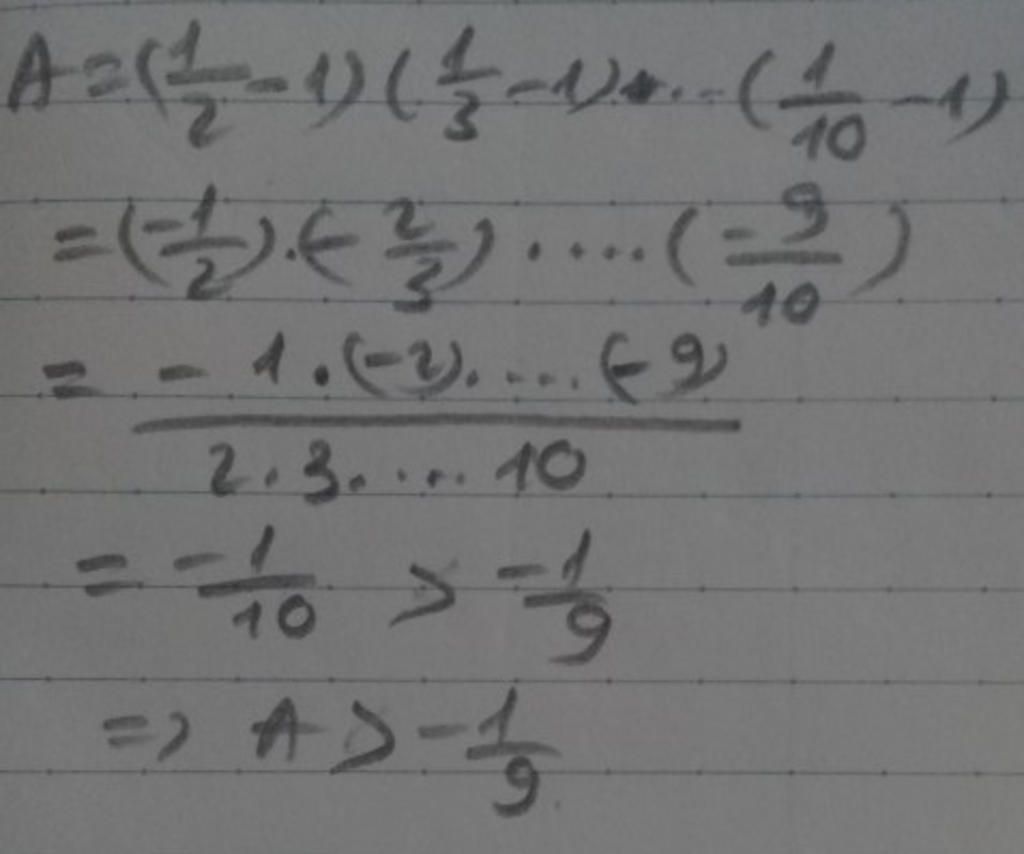 A = (1/2 - 1) (1/3 - 1) .... (1/10 - 1)
= (-1/2) . (- 2/3) ..... (-9/10)
= - 1 . (-2) ..... (-9) / 2 . 3 ..... 10
= -1/10 > -1/9
=> A > -1/9